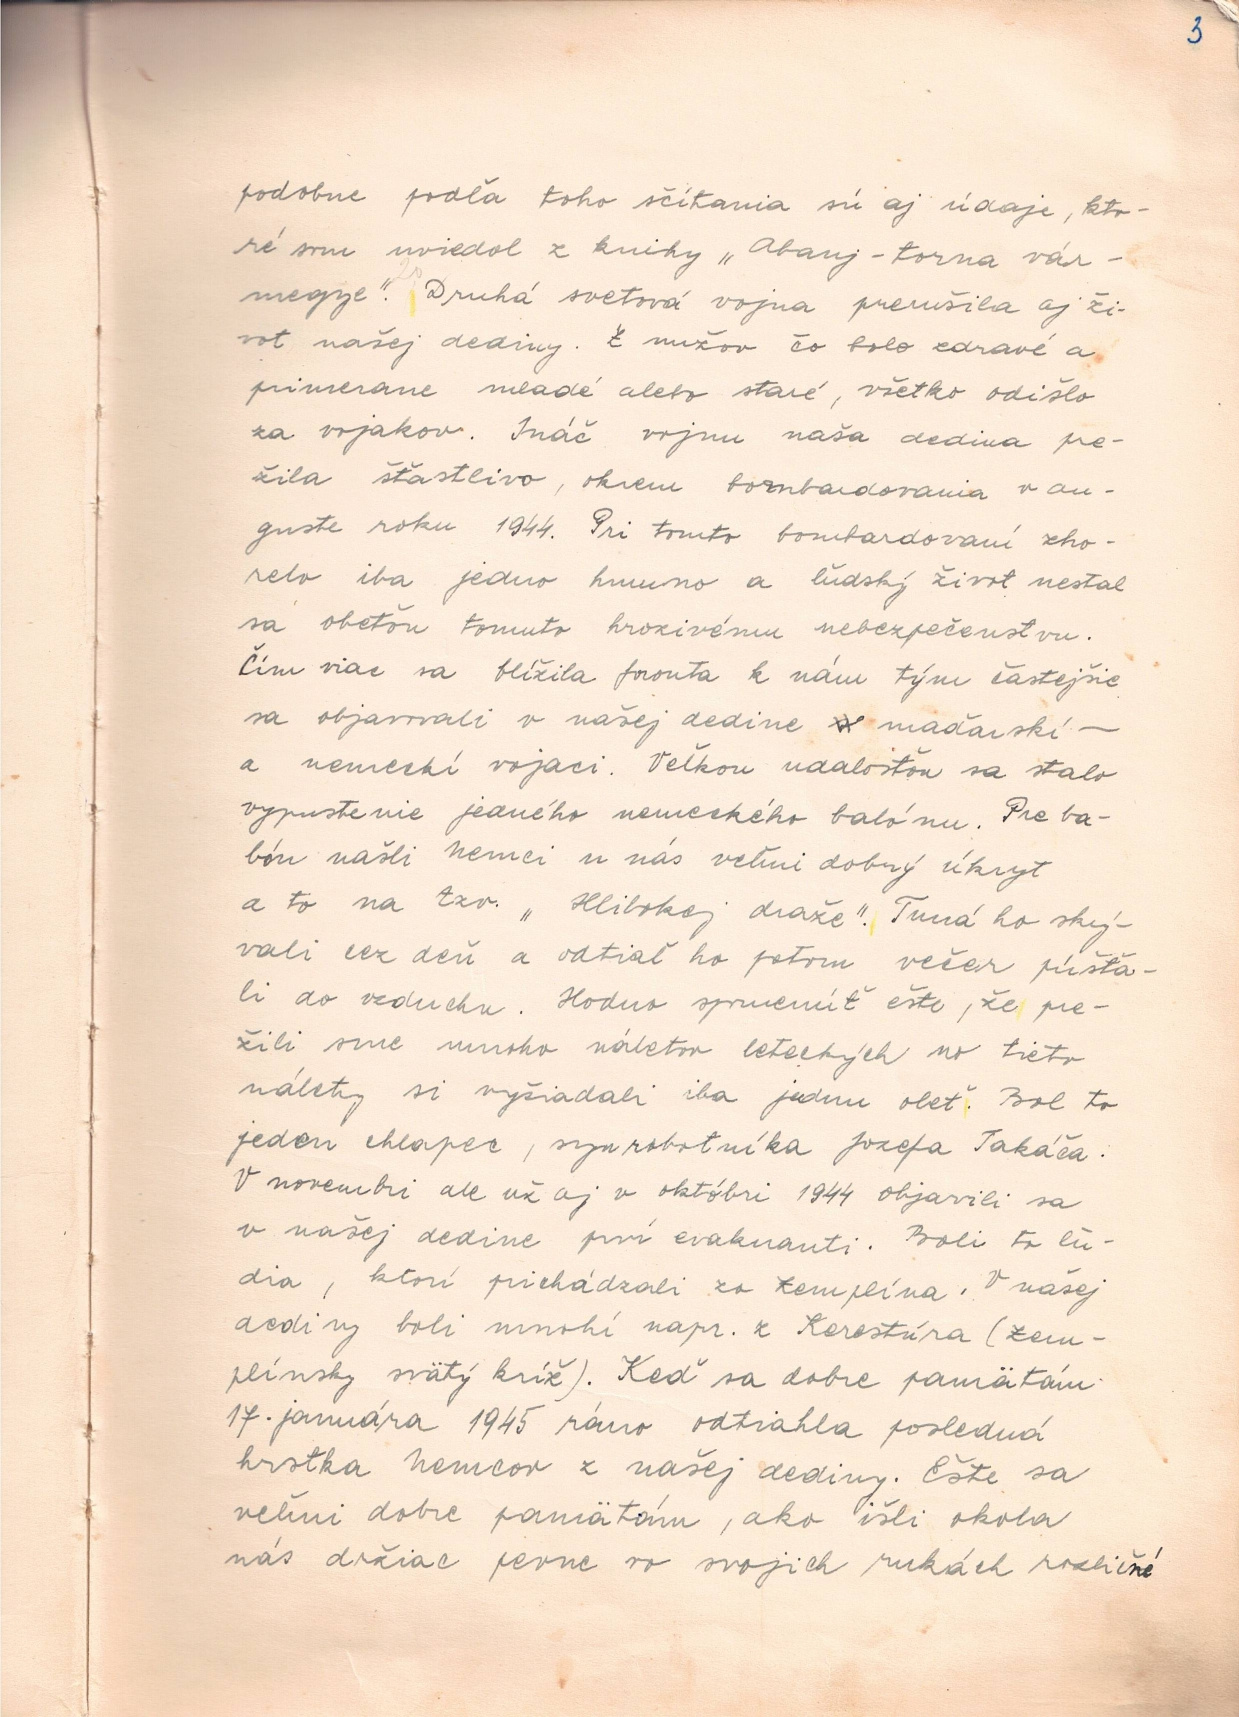 3
podobne podľa toho sčítania sú aj údaje, kto-
ré som uviedol z knihy „Abauj-torna vár-
megye". Druhá svetová vojna prerušila aj ži-
vot našej dediny. Z mužov čo bolo zdravé a
primerane mladé alebo staré, všetko odišlo
za vojakov. Ináč vojnu naša dedina pre-
žila šťastlivo, okrem bombardovania v au-
guste roku 1944. Pri tomto bombardovaní zho-
relo iba jedno humno a ľudský život nestal
sa obeťou tomuto hrozivému nebezpečenstvu.
Čím viac sa blížila fronta k nám tým častejšie
sa objavovali v našej dedine maďarskí —
a nemeckí vojaci. Veľkou udalosťou sa stalo
vypustenie jedného nemeckého balónu. Pre ba-
bón našli Nemci u nás veľmi dobrý úkryt
a to na tzv. „Hlibokej draže". Tuná ho skrý-
vali cez deň a odtiaľ ho potom večer púšťa-
li do vzduchu. Hodno spomenúť ešte, že pre-
žili sme mnoho náletov leteckých no tieto
nálety si vyžiadali iba jednu obeť. Bol to
jeden chlapec, syn robotníka Jozefa Takáča.
V novembri ale už aj v októbri 1944 objavili sa
v našej dedine prví evakuanti. Boli to ľu-
dia, ktorí prichádzali zo Zemplína. V našej
dediny boli mnohí napr. z Kerestúra (Zem-
plínsky svätý kríž). Keď sa dobre pamätám
17. januára 1945 ráno odtiahla posledná
hrstka Nemcov z našej dediny. Ešte sa
veľmi dobre pamätám, ako išli okola
nás držiac pevne vo svojich rukách rozličné